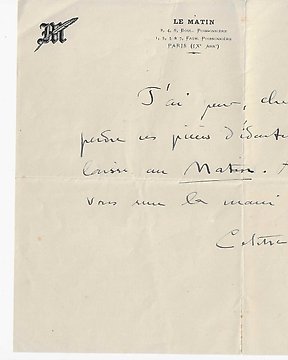 M
LE MATIN
2, 4, 6, Boul. Poissonnière
1, 3, 5 & 7, Faub. Poissonnière
PARIS (IXe Arrt)
J'ai peur, che
perdre ces pièces d'identi
laisse au Matin.
Vous serre la main